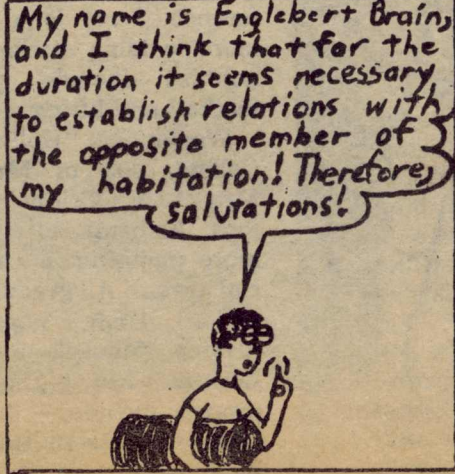 My name is Englebert Brain,
and I think that for the
duration it seems necessary
to establish relations with
the opposite member of
my habitation! Therefore,
salutations!